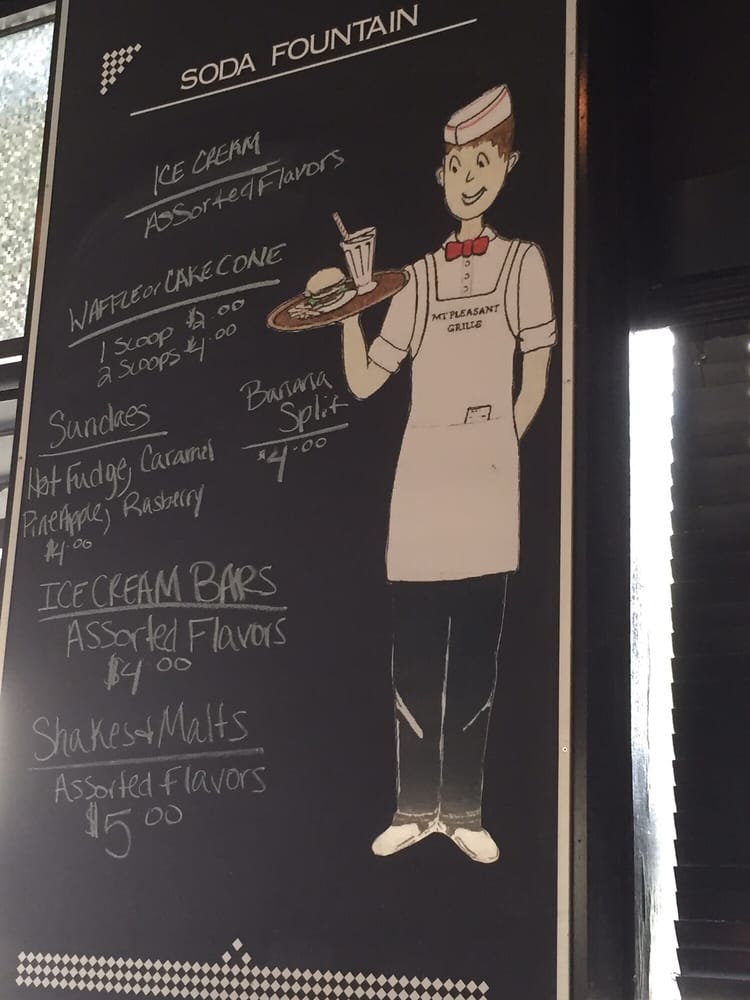 SODA FOUNTAIN
ICE CREAM
Assorted Flavors
WAFFLE or CAKE CONE
1 Scoop $2.00
2 Scoops $4.00
Banana
Split
$4.00
Sundaes
Hot Fudge, Caramel
PineApple, Rasberry
$4.00
ICE CREAM BARS
Assorted Flavors
$4.00
Shakes & Malts
Assorted Flavors
$5.00
MT PLEASANT
GRILLE